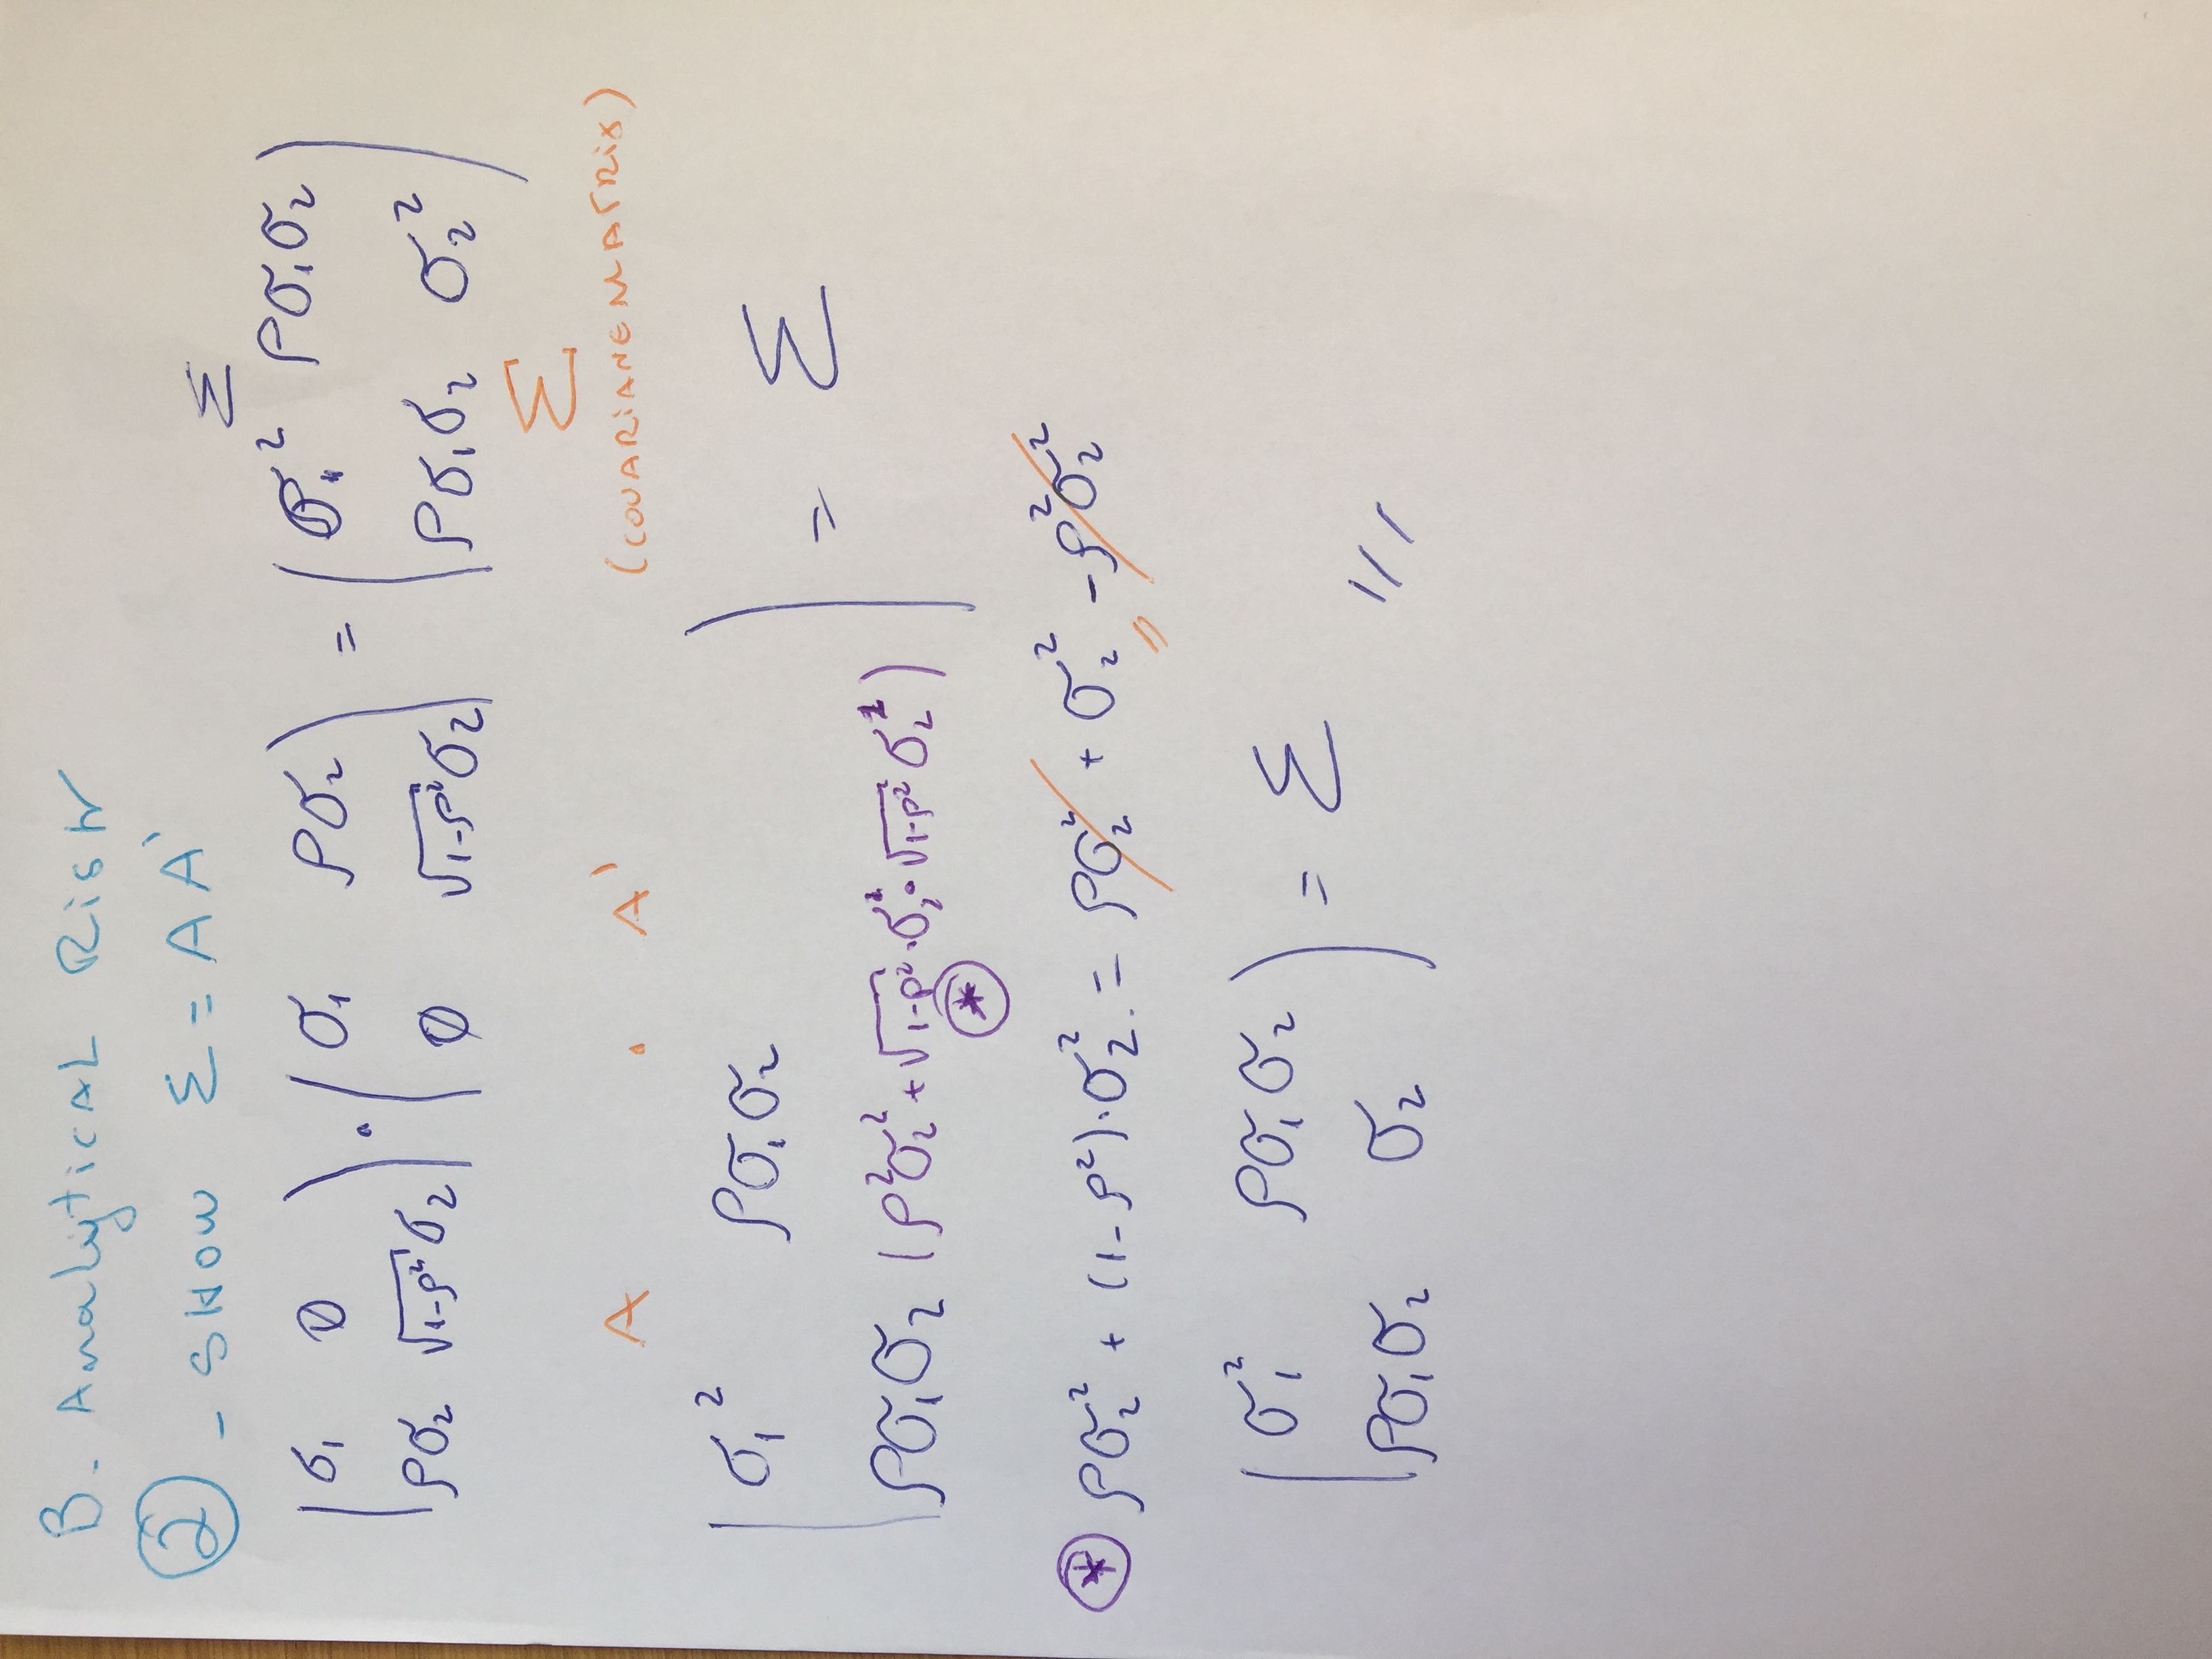 B. Analytical Risk
② - SHOW Σ = A A'
Σ
( σ₁ 0 ) · ( σ₁ ρσ₂ ) = ( σ₁² ρσ₁σ₂ )
( ρσ₂ √1-ρ² σ₂ ) ( 0 √1-ρ² σ₂ ) ( ρσ₁σ₂ σ₂² )
Σ
A · A' (COVARIANE MATRIX)
( σ₁² ρσ₁σ₂ ) = Σ
( ρσ₁σ₂ (ρ²σ₂² + √1-ρ² · σ₂ · √1-ρ² σ₂) )
*
* ρσ₂² + (1-ρ²)·σ₂². = ρσ₂² + σ₂² - ρ²σ₂²
( σ₁² ρσ₁σ₂ ) = Σ
( ρσ₁σ₂ σ₂ ) ///